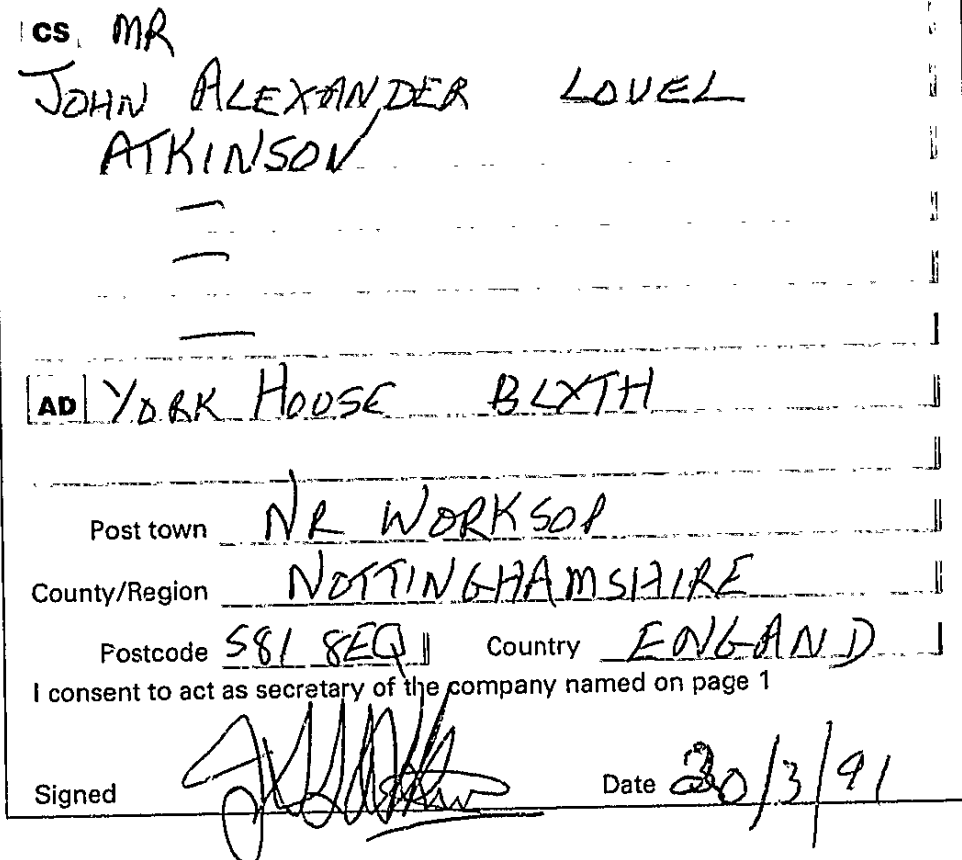 CS MR
JOHN ALEXANDER LOVEL
ATKINSON
—
—
—
AD YORK HOUSE BLYTH
Post town NR WORKSOP
County/Region NOTTINGHAMSHIRE
Postcode S81 8EQ Country ENGAND
I consent to act as secretary of the company named on page 1
Signed Date 30/3/91